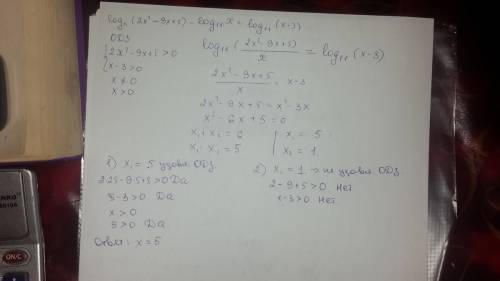 log₁₁(2x²-9x+5) - log₁₁x = log₁₁(x-3)
ОДЗ
{2x²-9x+5>0
{x-3>0
x≠0
x>0
log₁₁(2x²-9x+5)/x = log₁₁(x-3)
(2x²-9x+5)/x = x-3
2x²-9x+5=x²-3x
x²-6x+5=0
x₁+x₂=6
x₁·x₂=5
x₁=5
x₂=1
1) x₁=5 удовл. ОДЗ
2·25-9·5+5>0 Да
5-3>0 Да
x>0
5>0 Да
Ответ: x=5
2) x₁=1 → не удовл ОДЗ
2-9+5>0 Нет
x-3>0 Нет